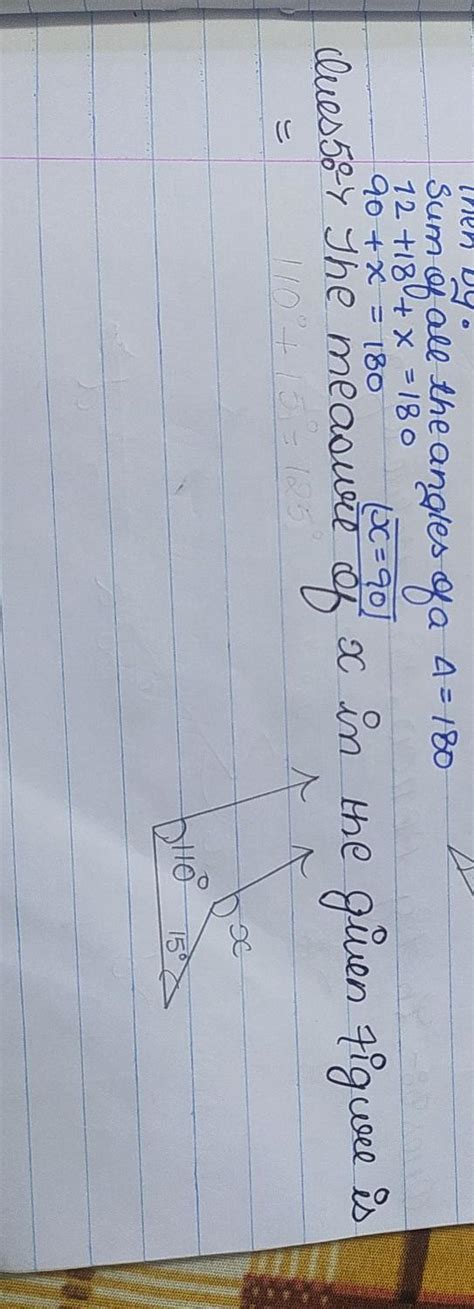 Then by.
Sum of all the angles of a Δ = 180
72 + 18 + x = 180
90 + x = 180 x = 90
Ques 5 :→ The measure of x in the given figure is
=
110° + 15° = 125°
110°
15°
x